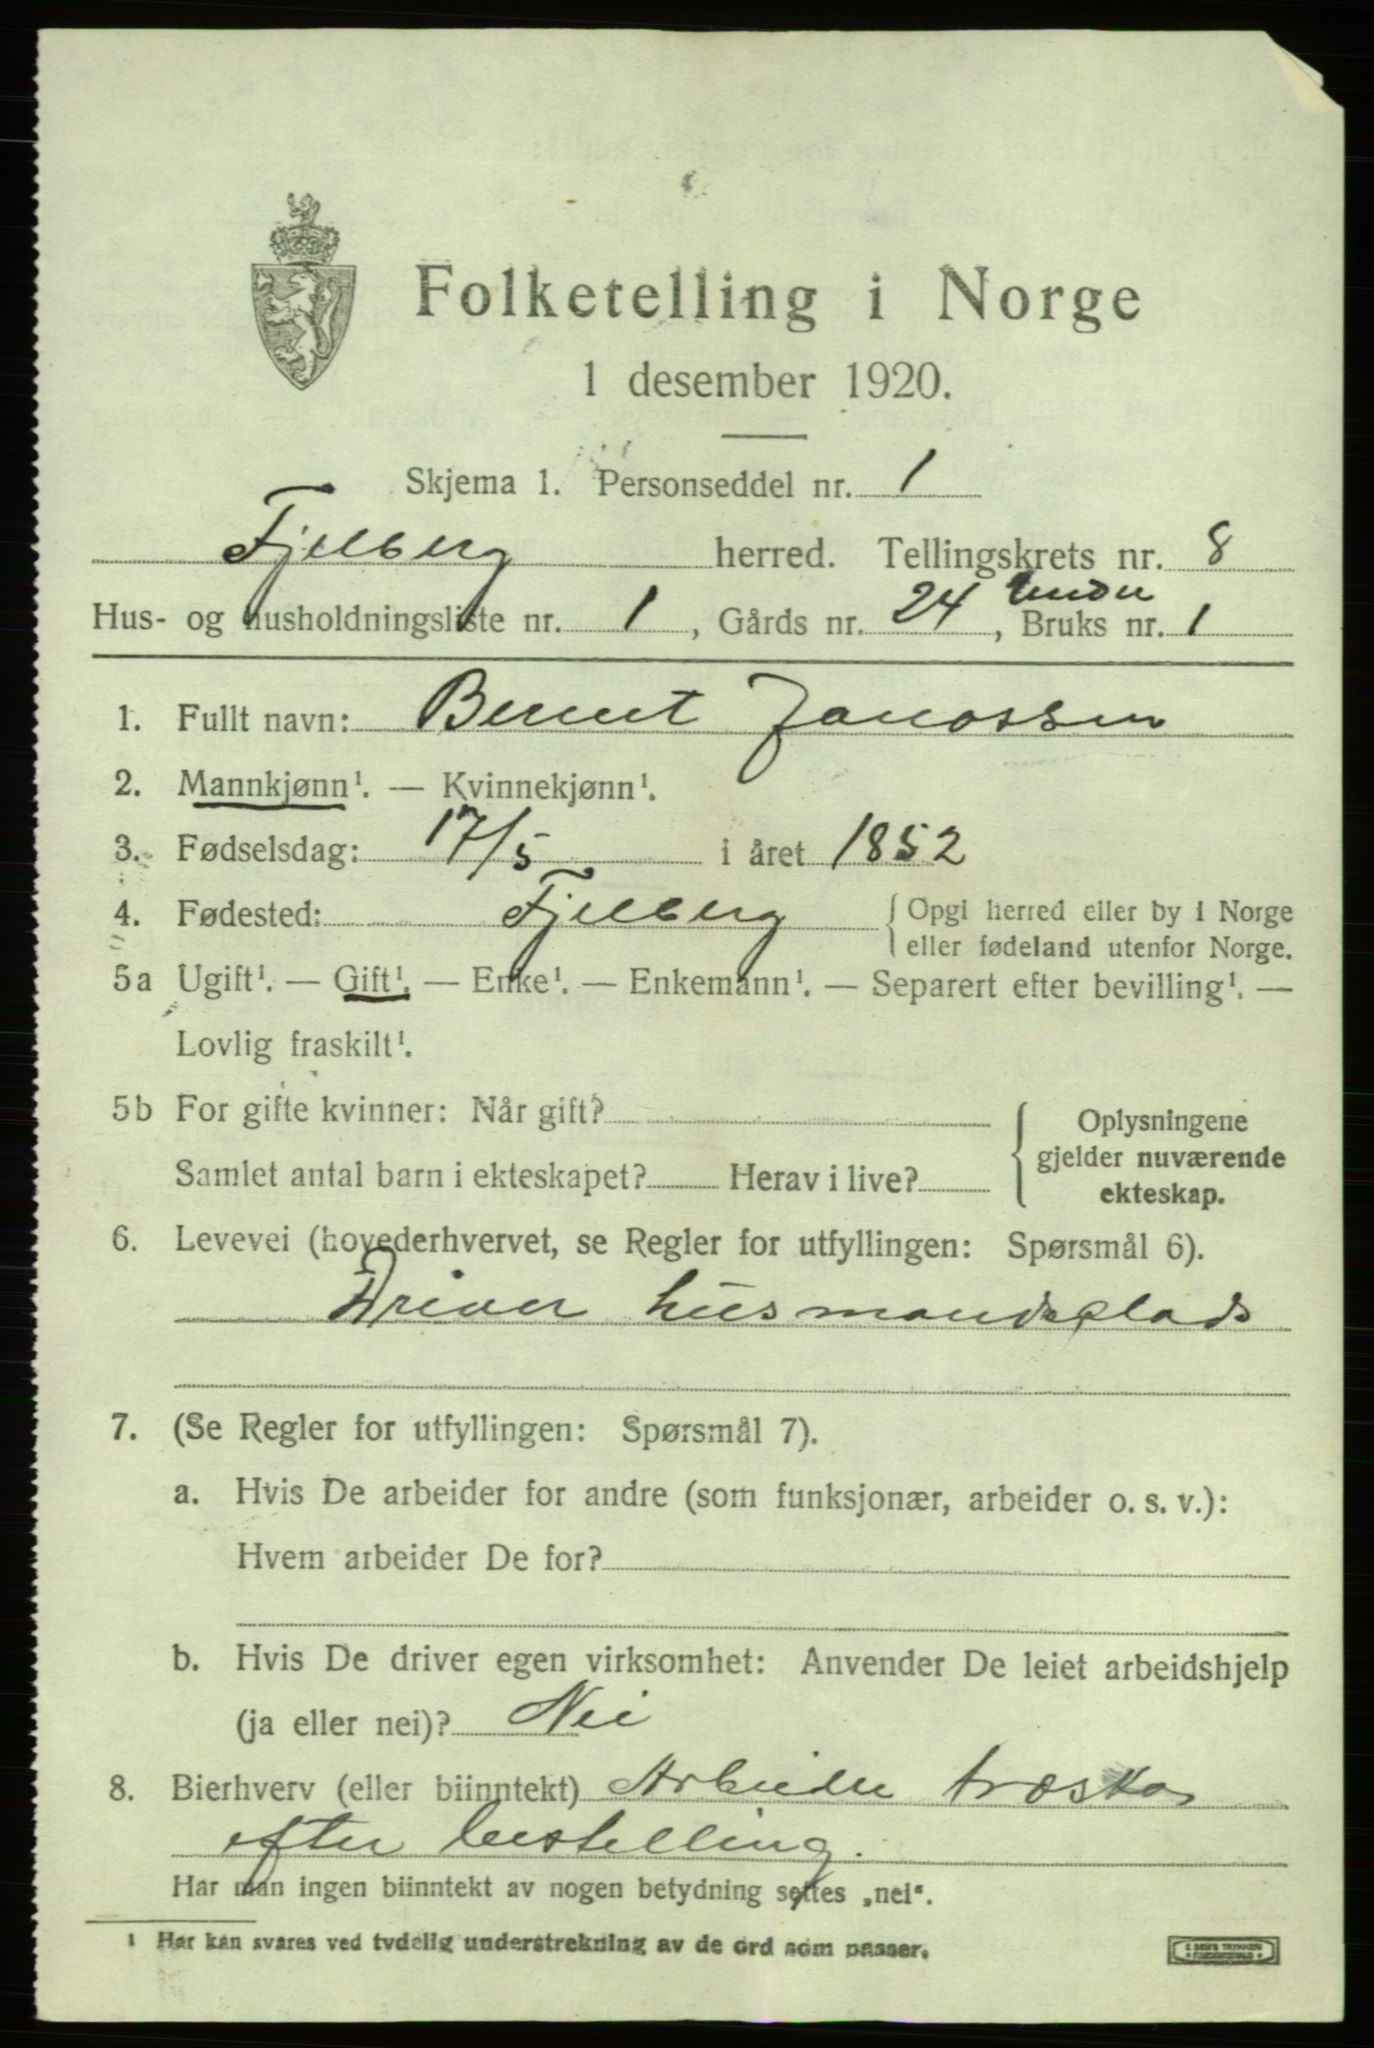 Folketelling i Norge
1 desember 1920.
Skjema 1. Personseddel nr. 1
Fjelberg herred. Tellingskrets nr. 8
Hus- og husholdningsliste nr. 1, Gårds nr. 24 under, Bruks nr. 1
1. Fullt navn: Bernt Janossen
2. Mannkjønn¹. — Kvinnekjønn¹.
3. Fødselsdag: 17/5 i året 1852
4. Fødested: Fjelberg { Opgi herred eller by i Norge
eller fødeland utenfor Norge.
5a Ugift¹. — Gift¹. — Enke¹. — Enkemann¹. — Separert efter bevilling¹. —
Lovlig fraskilt¹.
5b For gifte kvinner: Når gift?
Samlet antal barn i ekteskapet? Herav i live?
{ Oplysningene
gjelder nuværende
ekteskap.
6. Levevei (hovederhvervet, se Regler for utfyllingen: Spørsmål 6).
Driver husmandsplads
7. (Se Regler for utfyllingen: Spørsmål 7).
a. Hvis De arbeider for andre (som funksjonær, arbeider o. s. v.):
Hvem arbeider De for?
b. Hvis De driver egen virksomhet: Anvender De leiet arbeidshjelp
(ja eller nei)? Nei
8. Bierhverv (eller biinntekt) Arbeider træsko
efter bestelling.
Har man ingen biinntekt av nogen betydning settes „nei“.
¹ Her kan svares ved tydelig understrekning av de ord som passer.